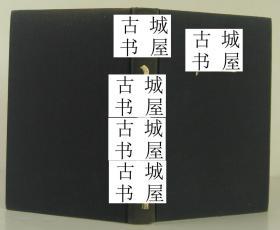 古城
书屋
古城
书屋
古城
书屋
古城
书屋
古城
书屋